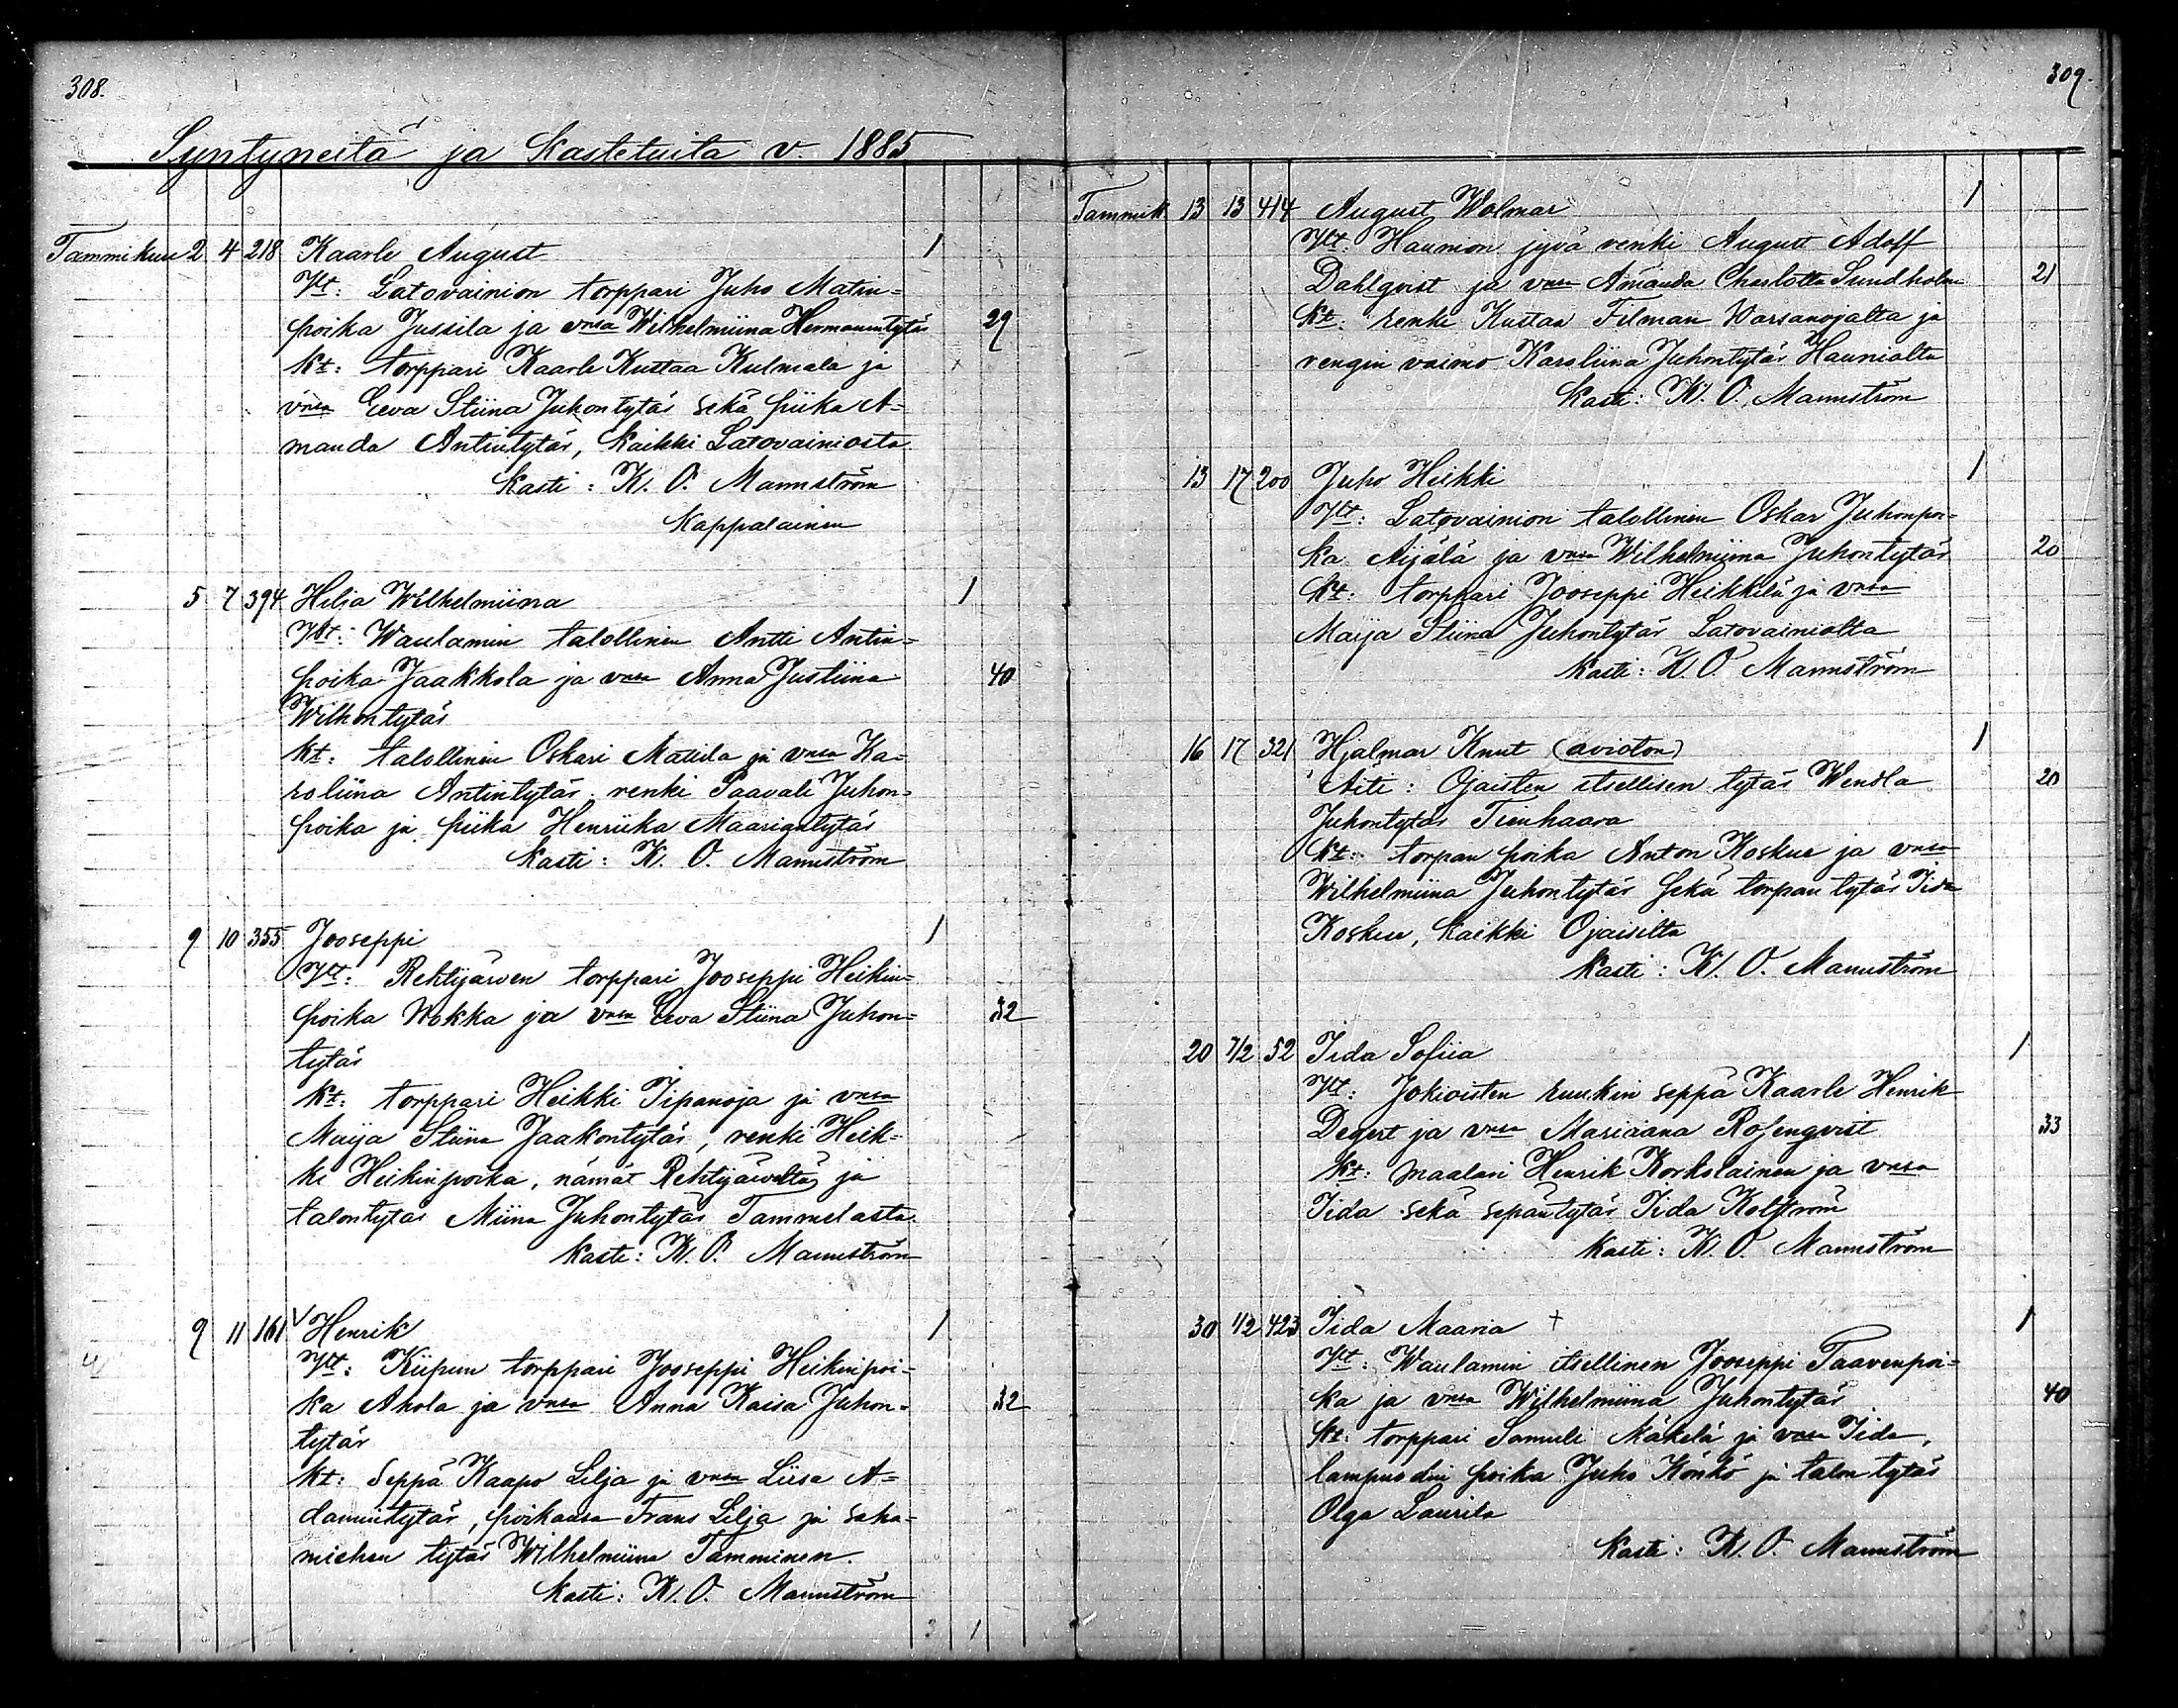 308.
Syntyneitä ja kastetuita v. 1885
Tammikuu 2 4 218 Kaarle August 1
Vt: Latovainion torppari Juho Matin=
poika Jussila ja vnsa Wilhelmiina Hermannintytär 29
kt: torppari Kaarle Kustaa Kulmala ja
vnsa Eeva Stiina Juhontytär sekä piika A=
manda Antintytär, kaikki Latovainiosta.
Kasti: K. O. Mannström
Kappalainen
5 7 394 Hilja Wilhelmiina 1
Vt: Waulamin talollinen Antti Antin=
poika Jaakkola ja vnsa Anna Justiina 40
Wilhontytär
kt: talollinen Oskari Mattila ja vnsa Ka=
roliina Antintytär, renki Paavali Juhon=
poika ja piika Henriika Maariantytär
Kasti: K. O. Mannström
9 10 355 Jooseppi 1
Vt: Rehtijärven torppari Jooseppi Heikin=
poika Nokka ja vnsa Eeva Stiina Juhon= 32
tytär
kt: torppari Heikki Iipanoja ja vnsa
Maija Stiina Jaakontytär, renki Heik=
ki Heikinpoika, nämät Rehtijärveltä, ja
talontytär Miina Juhontytär Tammelasta.
Kasti: K. O. Mannström
9 11 161 Henrik 1
Vt: Kiipun torppari Jooseppi Heikinpoi=
ka Ahola ja vnsa Anna Kaisa Juhon= 32
tytär
kt: Seppä Kaapo Lilja ja vnsa Liisa A=
damintytär, poikansa Frans Lilja ja saha=
miehen tytär Wilhelmiina Tamminen.
Kasti: K. O. Mannström
3 1
309.
Tammik 13 13 414 August Wolmar 1
Vt: Haunion jyvä renki August Adolf
Dahlqvist ja vnsa Amanda Charlotta Sundholm 21
kt: renki Kustaa Felman Warsanojalta ja
rengin vaimo Karoliina Juhontytär Haunialta
Kasti: K. O. Mannström
13 17 200 Juho Heikki 1
Vt: Latovainion talollinen Oskar Juhonpoi=
ka Äijälä ja vnsa Wilhelmiina Juhontytär 20
kt: torppari Jooseppi Heikkilä ja vnsa
Maija Stiina Juhontytär Latovainiolta
Kasti: K. O. Mannström
16 17 321 Hjalmar Knut (avioton) 1
Äiti: Ojaisten itsellisen tytär Wendla 20
Juhontytär Tienhaara
kt: torpan poika Anton Koskue ja vnsa
Wilhelmiina Juhontytär sekä torpan tytär Iida
Koskue, kaikki Ojaisilta
Kasti: K. O. Mannström
20 1/2 52 Iida Sofiia 1
Vt: Jokioisten ruukin seppä Kaarle Henrik
Degert ja vnsa Mariaana Rosenqvist 33
kt: maalari Henrik Korkolainen ja vnsa
Iida sekä sepäntytär Iida Kolström
Kasti: K. O. Mannström
30 1/2 423 Iida Maaria + 1
Vt: Waulamin itsellinen Jooseppi Taavenpoi=
ka ja vnsa Wilhelmiina Juhontytär 40
kt: torppari Samuli Mäkelä ja vnsa Iida,
lampuodin poika Juho Könkö ja talon tytär
Olga Laurila
Kasti: K. O. Mannström
3